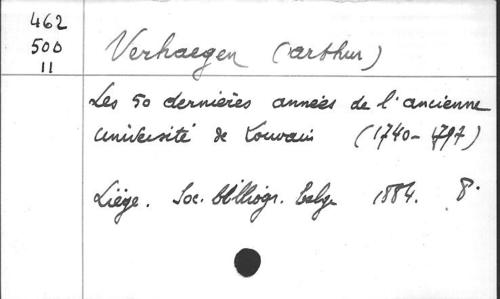 462
500
11
Verhaegen (Arthur)
Les 50 dernières années de l'ancienne
Université de Louvain (1740-1797)
Liège. Soc. bibliogr. belge 1884. 8°.